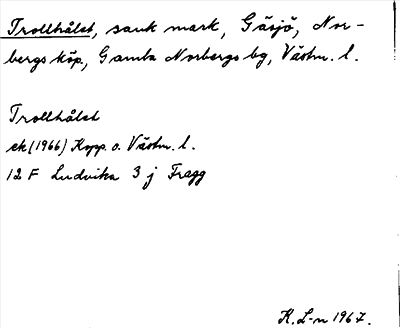 Trollhålet, sank mark, Gäsjö, Nor-
bergs köp, Gamla Norbergs bg, Västm. l.
Trollhålet
ek (1966) Kopp. o. Västm. l.
12 F Ludvika 3 j Fragg
K. L-n 1967.